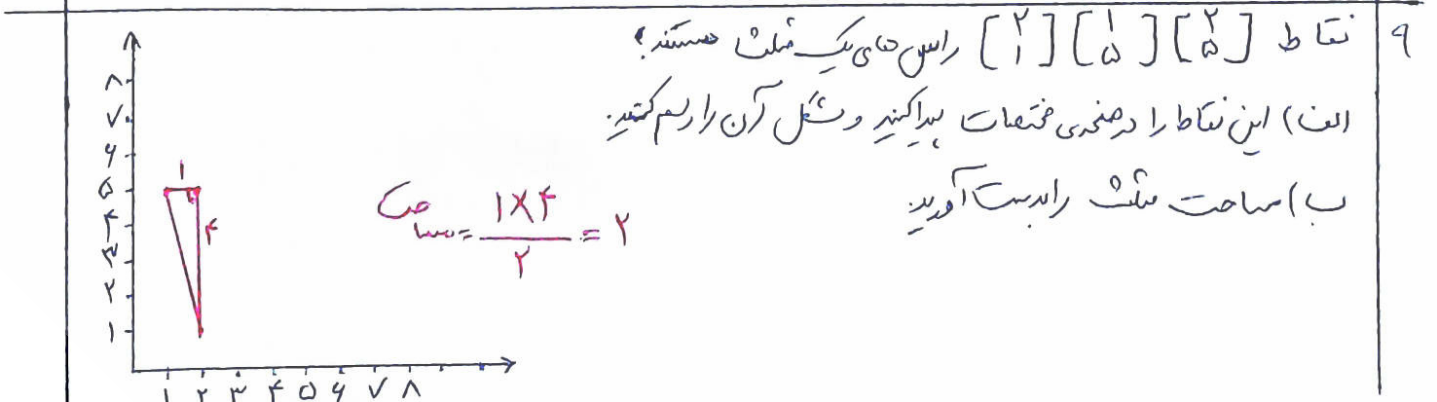 ۹ نقاط [۲ ۵] [۱ ۵] [۲ ۱] راس های یک مثلث هستند؟
الف) این نقاط را در صفحه‌ی مختصات پیدا کنید و شکل آن را رسم کنید.
ب) مساحت مثلث را بدست آورید.
مساحت = ۱×۴ / ۲ = ۲
۸
۷
۶
۵
۴
۳
۲
۱
۱
۴
۱ ۲ ۳ ۴ ۵ ۶ ۷ ۸